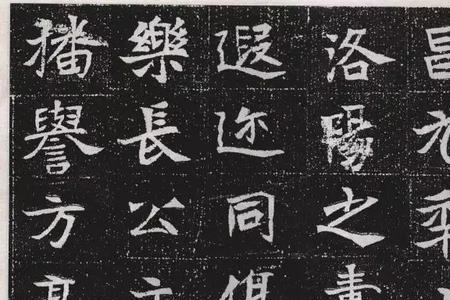 昌
洛陽之
遐迩同
樂長公
播譽方